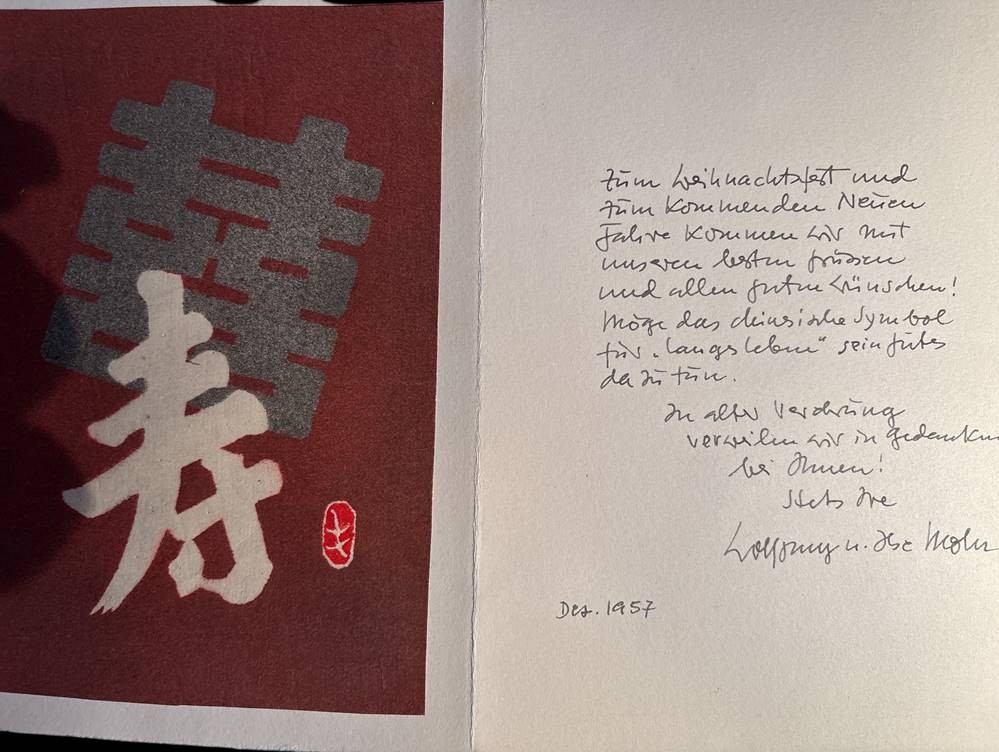 囍
壽
Zum Weihnachtsfest und
zum kommenden Neuen
Jahre kommen wir mit
unseren besten Grüssen
und allen guten Wünschen!
Möge das chinesische Symbol
für „langes leben" sein gutes
dazu tun.
In alter Verehrung
verweilen wir in Gedanken
bei Ihnen!
Stets Ire
Wolfgang u. Ilse
Dez. 1957